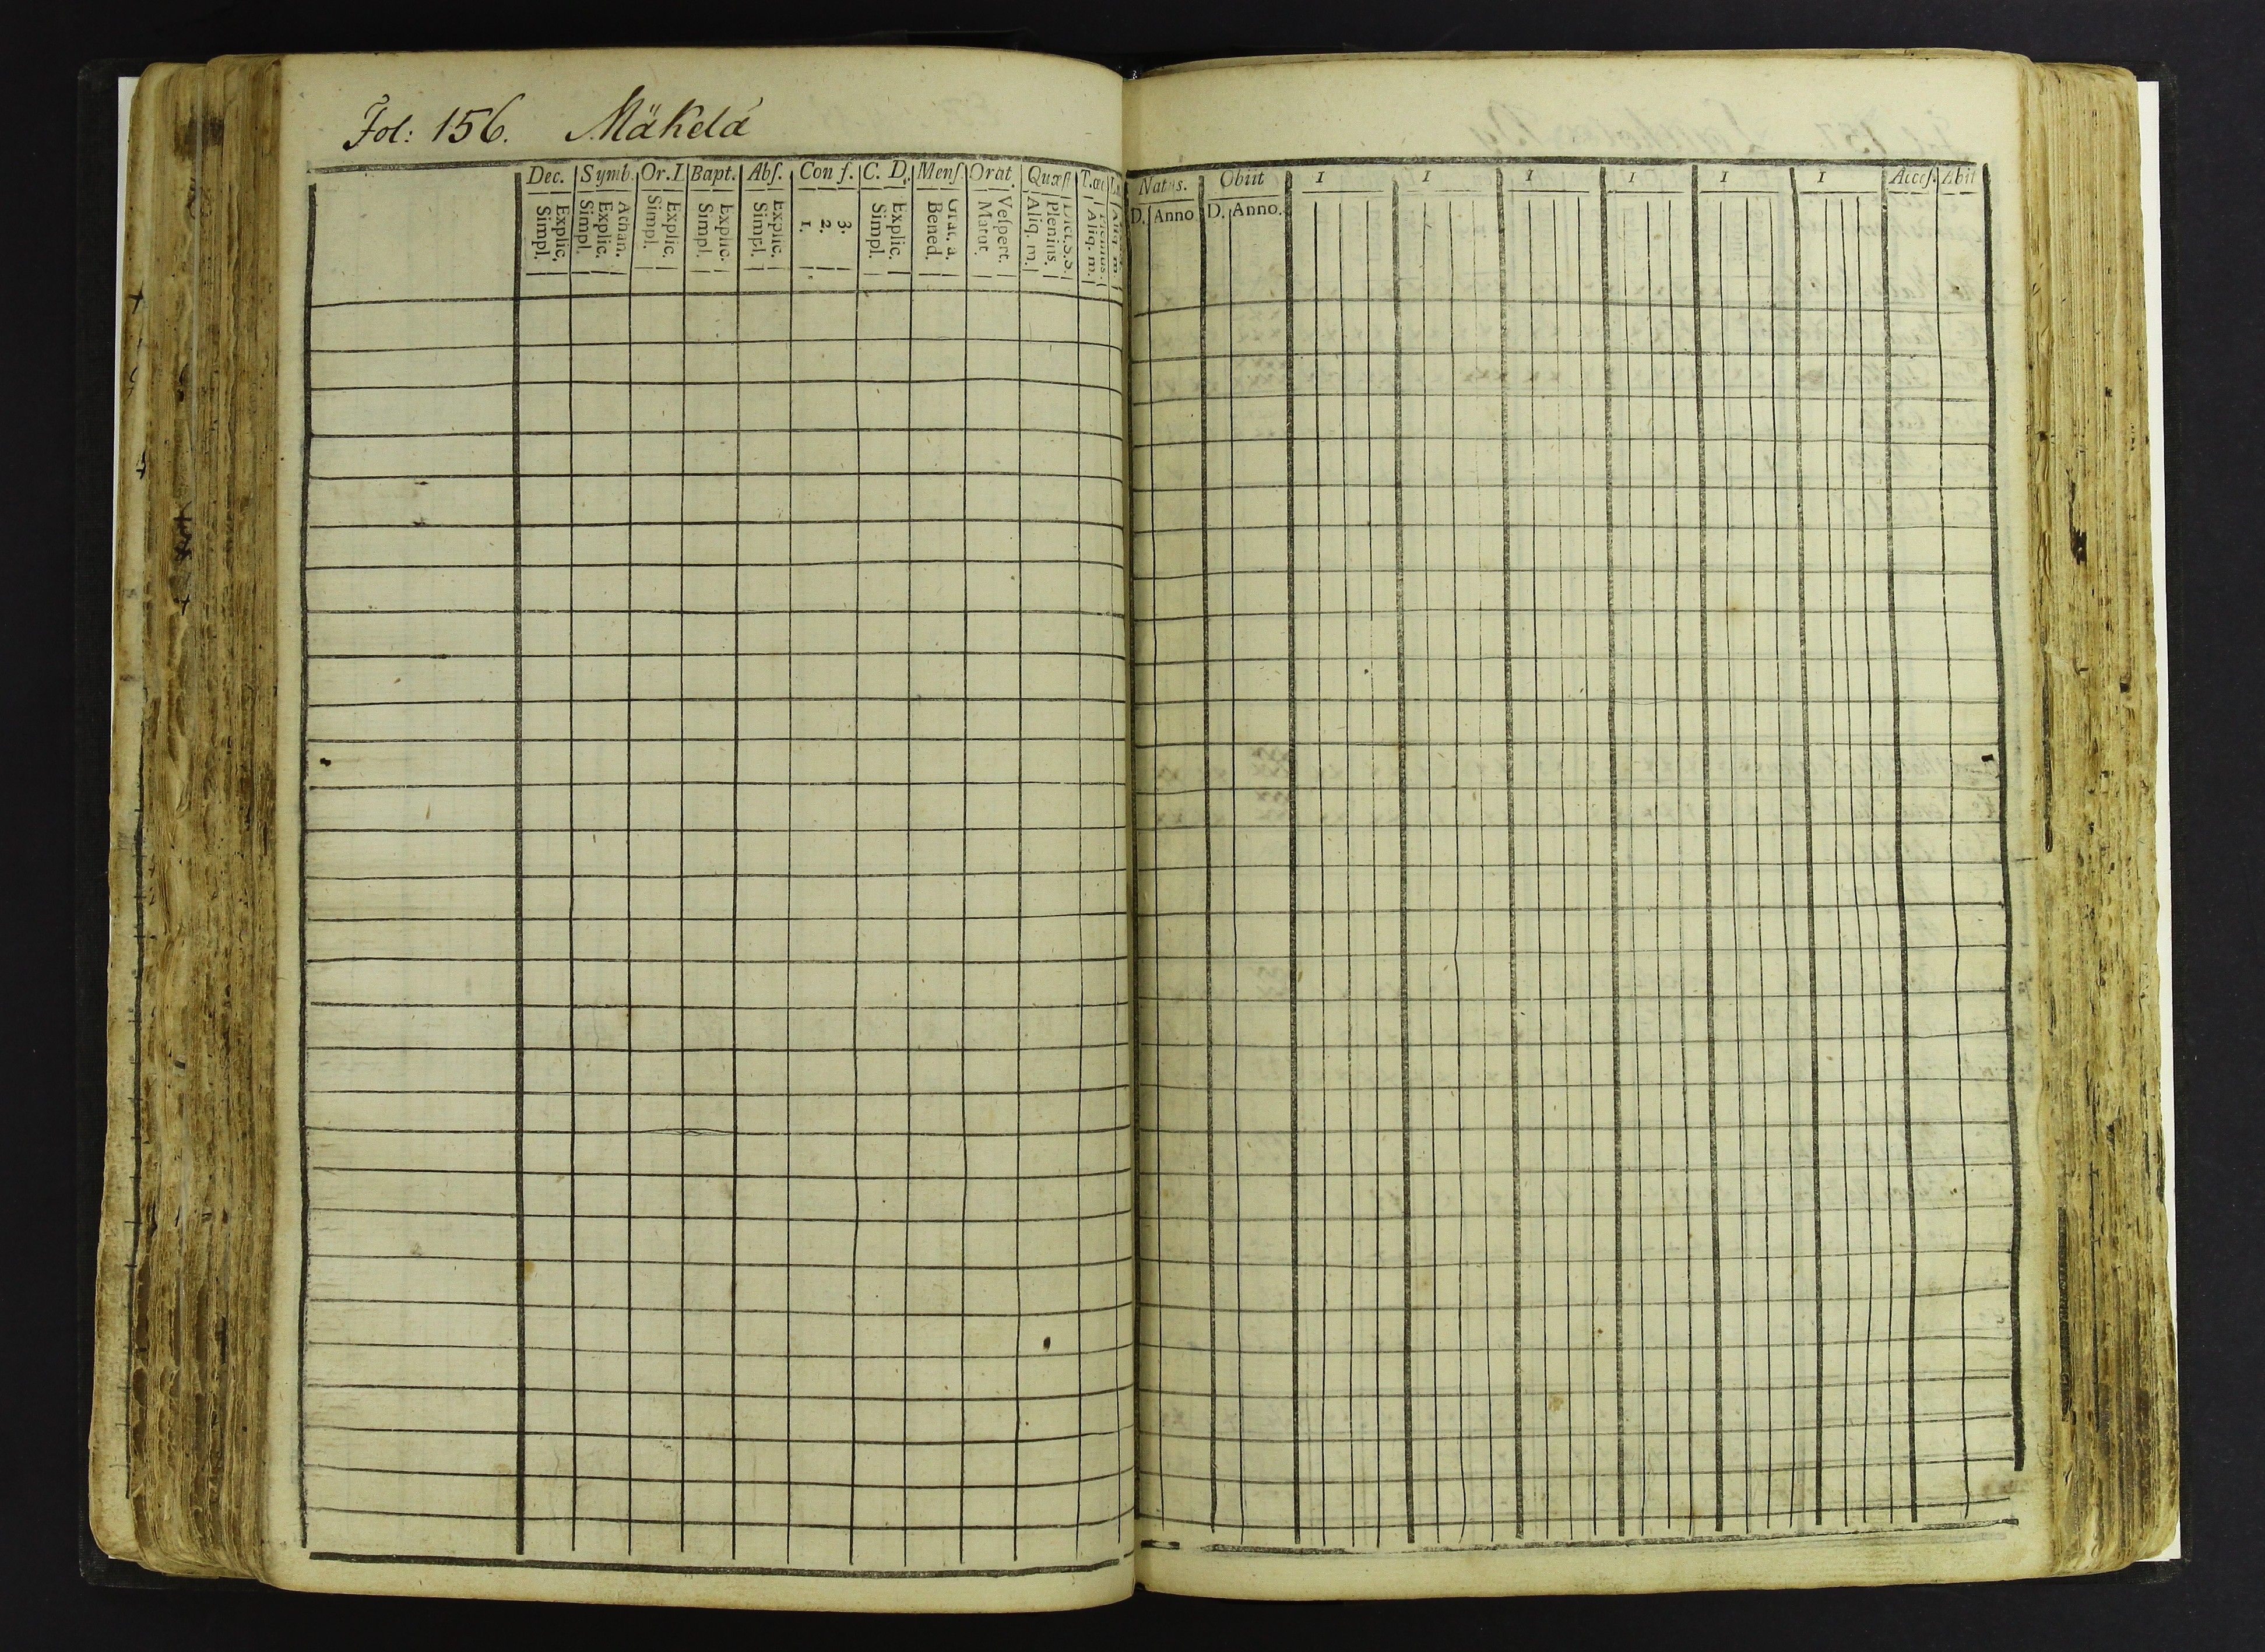 Fol: 156. Mäkelä
Dec. Symb. Or. I Bapt. Abſ. Con ſ. C. D. Menſ. Orat. Quæſt T. œc
Explic. Simpl.
Athan. Explic. Simpl.
Explic. Simpl.
Explic. Simpl.
Explic. Simpl.
3. 2. 1.
Explic. Simpl.
Grat. a. Bened.
Veſpert. Matut.
Dict. S. S. Plenius. Aliq. m.
Plenius. Aliq. m.
Aliq. m
Natus. Obiit 1 1 1 1 1 1 Acceſ. Abiit
D. Anno D. Anno.